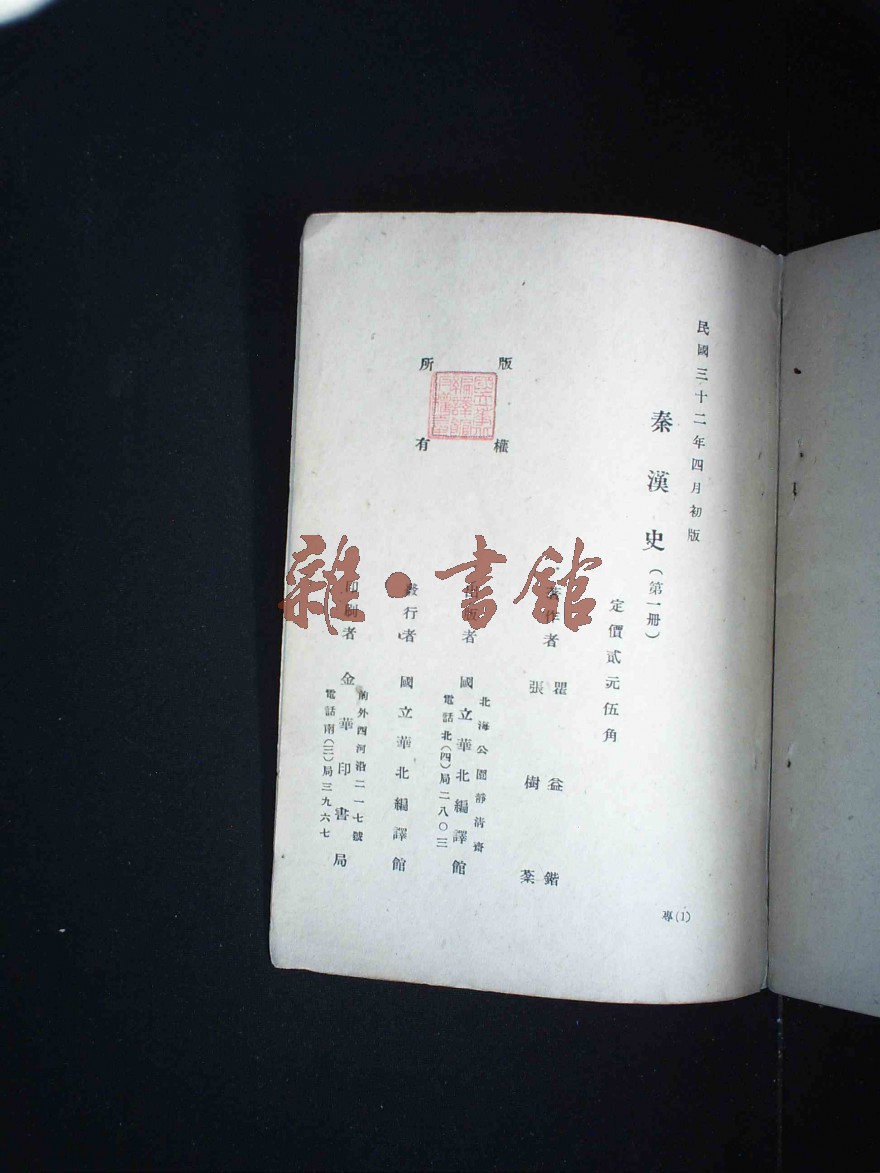 民國三十二年四月初版
秦漢史（第一冊）
定價貳元伍角
著作者 瞿益鍇
張樹棻
出版者 國立華北編譯館
北海公園靜清齋
電話北(四)局二八〇三
發行者 國立華北編譯館
印刷者 金華印書局
前外西河沿二一七號
電話南(三)局三九六七
版權
所有
專(1)
雜·書館